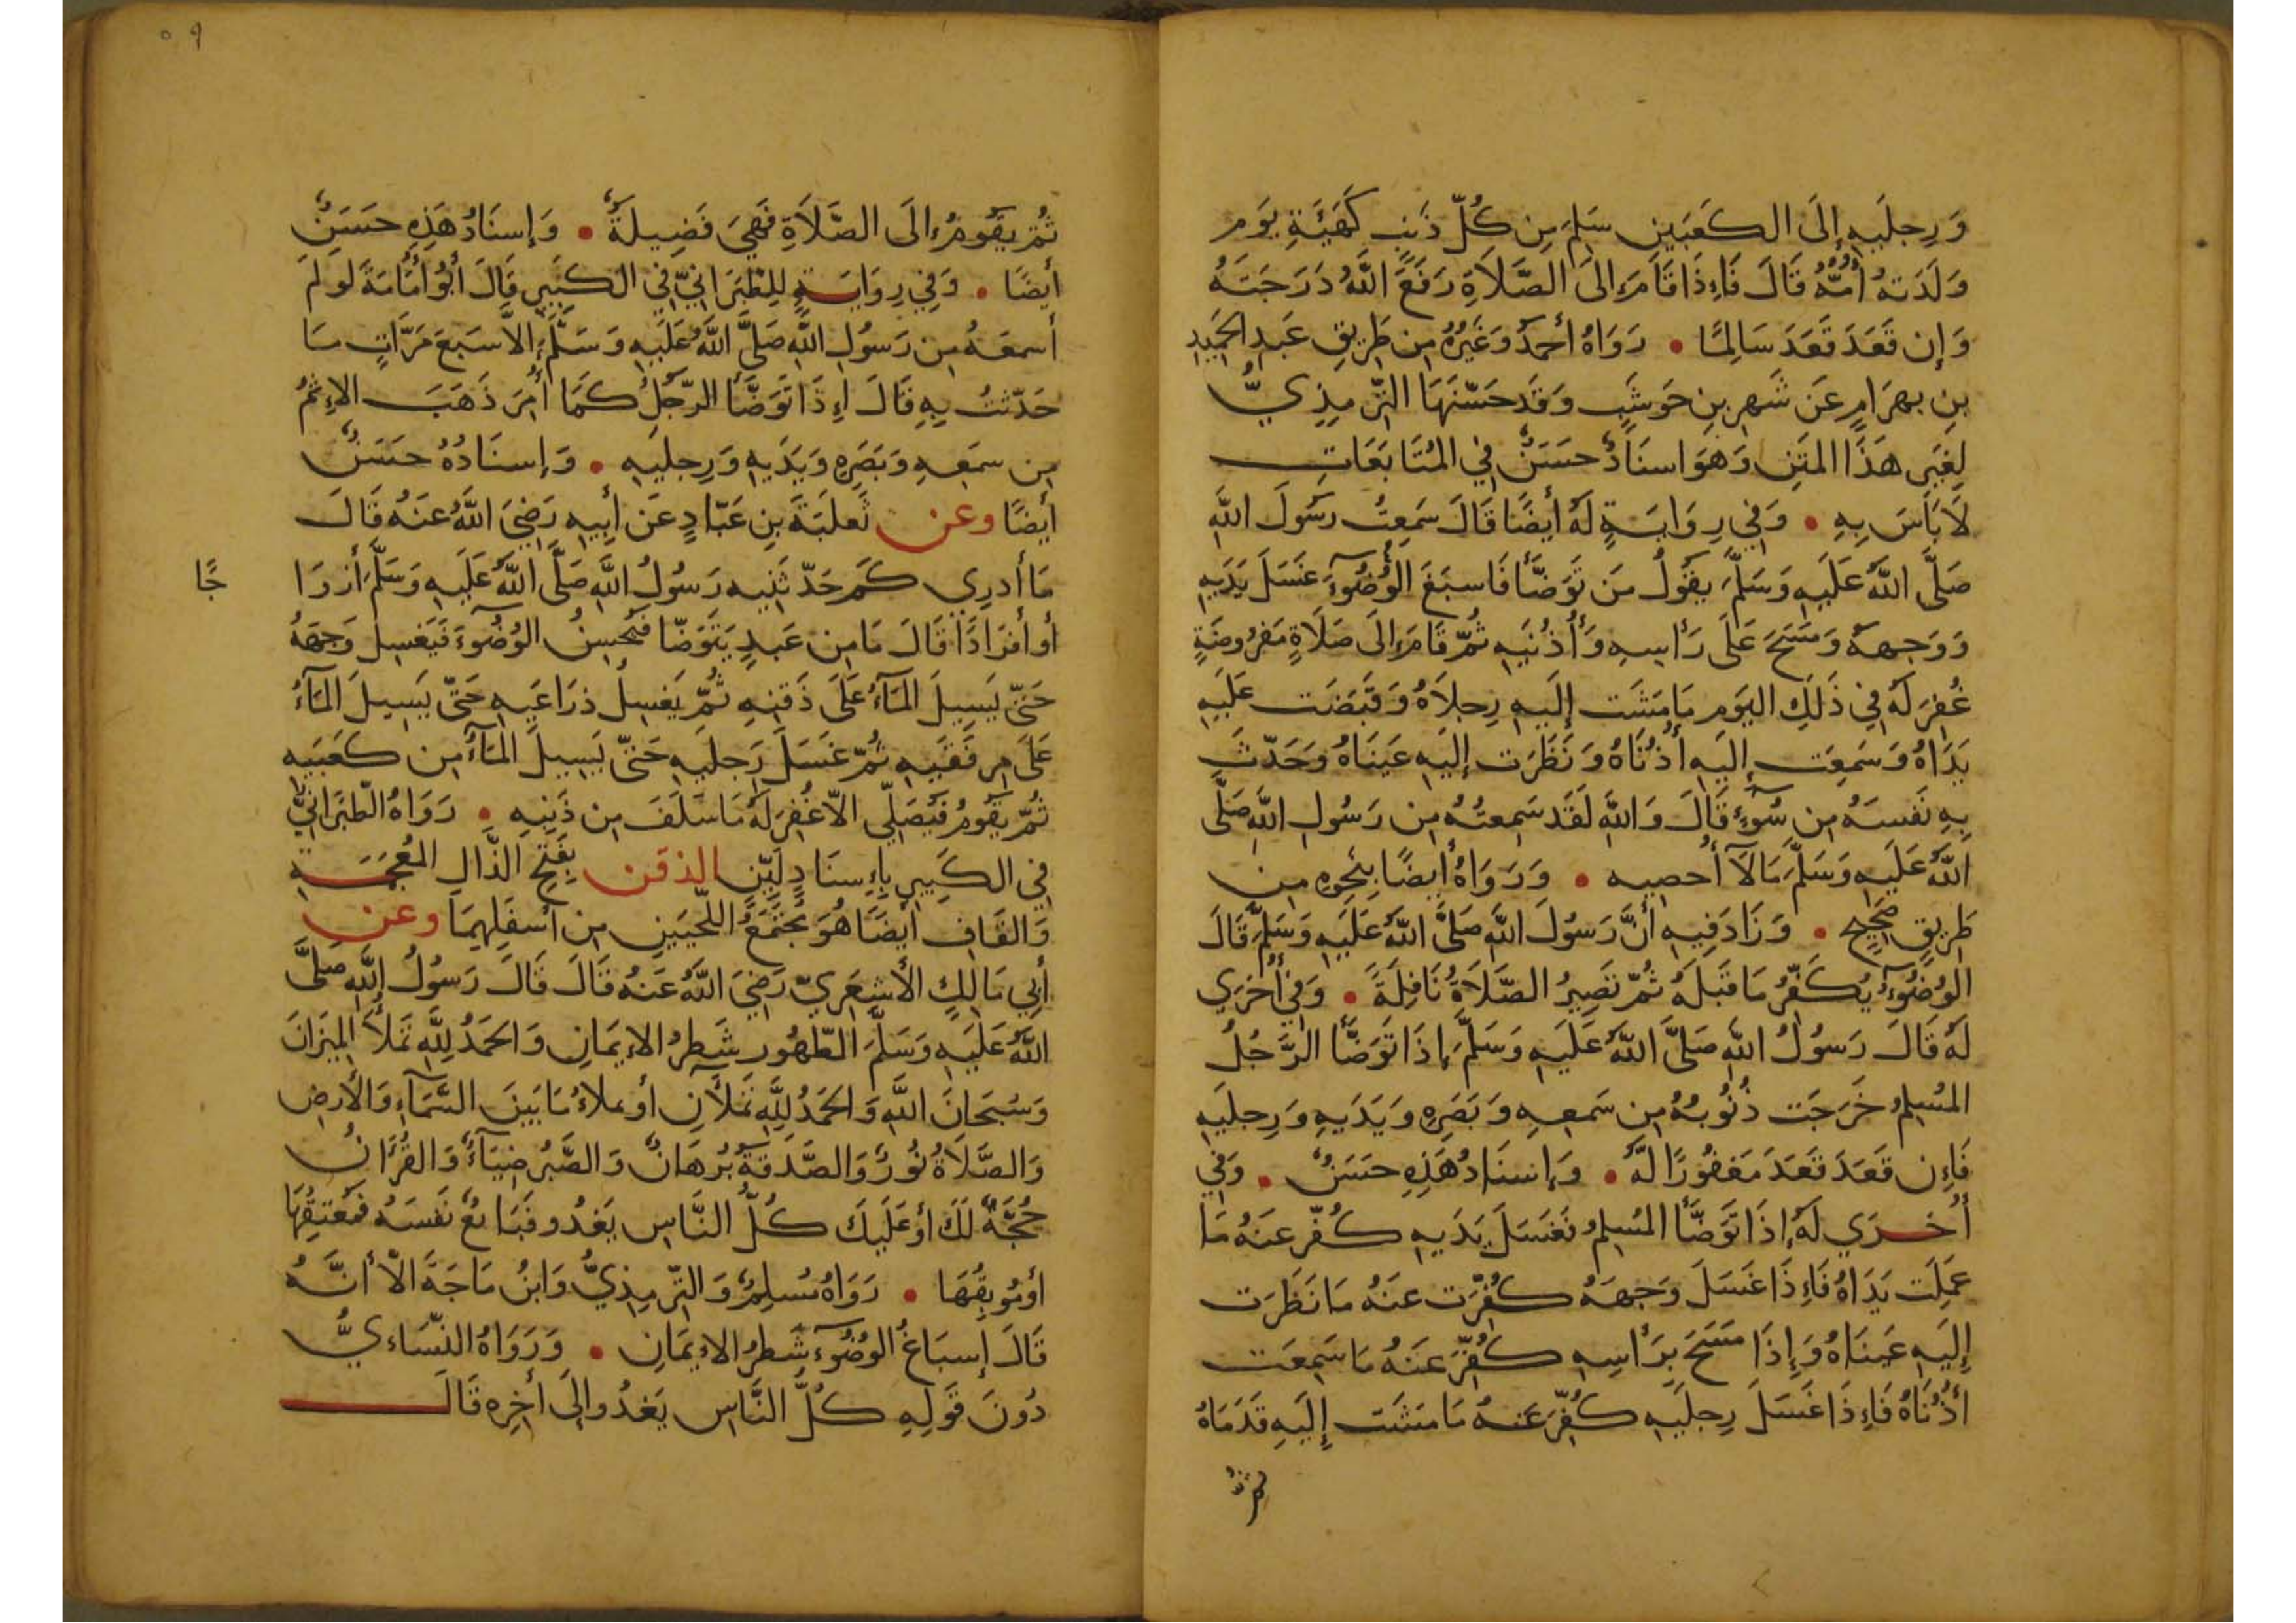 وَرِجلَيهِ إِلَى الكَعبَينِ سَلِمَ مِن كُلِّ ذَنبٍ كَهَيئَةِ يَوم
وَلَدَتهُ أُمُّهُ قَالَ فَإِذَا قَامَ إلَى الصَّلَاةِ رَفَعَ اللَّهُ دَرَجَتَهُ
وَإِن قَعَدَ قَعَدَ سَالِمًا • رَوَاهُ أَحمدُ وَغَيرُهُ مِن طَرِيقِ عَبدِ الحَمِيدِ
بنِ بهرَامٍ عَن شَهرِ بنِ حَوشَبٍ وَقَد حَسَّنَهَا التِّرمِذِيُّ
لِغَيرِ هَذَا المَتنِ وَهوَ اسنَادٌ حَسَنٌ فِي المُتَابَعَاتِ
لَا بَأسَ بِهِ • وَفِي رِوَايَةٍ لَهُ أَيضًا قَالَ سَمِعتُ رَسُولَ اللَّهِ
صَلَّى اللَّهُ عَلَيهِ وَسَلَّمَ يقُولُ مَن تَوَضَّأ فَاسبَغَ الوُضُوءَ غَسَلَ يَدَيهِ
وَوَجهَهُ وَمَسَحَ عَلَى رَأسِهِ وَأُذُنَيهِ ثُمَّ قَامَ إلَى صَلَاةٍ مَفرُوضَةٍ
غُفِرَ لَهُ فِي ذَلِكَ اليَومِ مَا مَشَت إِلَيهِ رِجلَاهُ وَقَبَضَت عَلَيهِ
يَدَاهُ وَسَمِعَت إِلَيهِ أُذُنَاهُ وَنَظَرَت إِلَيهِ عَينَاهُ وَحَدَّثَ
بِهِ نَفسَهُ مِن سُوءٍ قَالَ وَاللَّهِ لَقَد سَمِعتُهُ مِن رَسُولِ اللَّهِ صَلَّى
اللَّهُ عَلَيهِ وَسَلَّمَ مَالَا أُحصِيهِ • وَرَوَاهُ أَيضًا بِنَحوِهِ مِن
طَرِيقٍ صَحِيحٍ • وَزَادَ فِيهِ أَنَّ رَسُولَ اللَّهِ صَلَّى اللَّهُ عَلَيهِ وَسَلَّمَ قَالَ
الوُضُوءُ يُكَفِّرُ مَا قَبلَهُ ثُمَّ تَصِيرُ الصَّلَاةُ نَافِلَةً • وَفِي أُخرَي
لَهُ قَالَ رَسُولُ اللَّهِ صَلَّى اللَّهُ عَلَيهِ وَسَلَّمَ إِذَا تَوَضَّأ الرَّجُلُ
المُسلِمُ خَرَجَت ذُنُوبُهُ مِن سَمعِهِ وَبَصَرِهِ وَيَدَيهِ وَرِجلَيهِ
فَإِن قَعَدَ قَعَدَ مَغفُورًا لَهُ • وَإِسنَادُ هَذِهِ حَسَنٌ • وَفِي
أُخرَي لَهُ إِذَا تَوَضَّأ المُسلِمُ فَغَسَلَ يَدَيهِ كُفِّرَ عَنهُ مَا
عَمِلَت يَدَاهُ فَإِذَا غَسَلَ وَجهَهُ كُفِّرَت عَنهُ مَا نَظَرَت
إِلَيهِ عَينَاهُ وَإِذَا مَسَحَ بِرَأسِهِ كُفِّرَ عَنهُ مَا سَمِعَت
أُذُنَاهُ فَإِذَا غَسَلَ رِجلَيهِ كُفِّرَ عَنهُ مَا مَشَت إِلَيهِ قَدَمَاهُ
ثم
٥٩
ثُمَّ يَقُومُ إلَى الصَّلَاةِ فَهِيَ فَضِيلَةٌ • وَإِسنَادُ هَذِهِ حَسَنٌ
أَيضًا • وَفِي رِوَايَةٍ لِلطَّبَرَانِيِّ فِي الكَبِيرِ قَالَ أَبُو أُمَامَةَ لَو لَم
أَسمَعهُ مِن رَسُولِ اللَّهِ صَلَّى اللَّهُ عَلَيهِ وَسَلَّمَ إلَّا سَبعَ مَرَّاتٍ مَا
حَدَّثتُ بِهِ قَالَ إِذَا تَوَضَّأ الرَّجُلُ كَمَا أُمِرَ ذَهَبَ الإِثمُ
مِن سَمعِهِ وَبَصَرِهِ وَيَدَيهِ وَرِجلَيهِ • وَإِسنَادُهُ حَسَنٌ
أَيضًا وعن ثَعلَبَةَ بنِ عَبَّادٍ عَن أَبِيهِ رَضِيَ اللَّهُ عَنهُ قَالَ
مَا أَدرِي كَم حَدَّثَنِيهِ رَسُولُ اللَّهِ صَلَّى اللَّهُ عَلَيهِ وَسَلَّمَ أَزوَا
جًا
أَو أَفرَادًا قَالَ مَا مِن عَبدٍ يَتَوَضَّا فَيُحسِنُ الوُضُوءَ فَيَغسِلُ وَجهَهُ
حَتَّى يَسِيلَ المَآءُ عَلَى ذَقنِهِ ثُمَّ يَغسِلُ ذِرَاعَيهِ حَتَّى يَسِيلَ المَآءُ
عَلَى مِرفَقَيهِ ثُمَّ غَسَلَ رِجلَيهِ حَتَّى يَسِيلَ المَآءُ مِن كَعبَيهِ
ثُمَّ يَقُومُ فَيُصَلِّي الّا غُفِرَ لَهُ مَا سَلَفَ مِن ذَنبِهِ • رَوَاهُ الطَّبَرَانِيُّ
فِي الكَبِيرِ بِإِسنَادٍ لَيِّنٍ الذقن بِفَتحِ الذَّالِ المُعجَمَةِ
وَالقَافِ أَيضًا هُوَ مُجتَمَعُ اللَّحيَينِ مِن أَسفَلِهِمَا وعن
أَبِي مَالِكٍ الأَشعَرِيِّ رَضِيَ اللَّهُ عَنهُ قَالَ قَالَ رَسُولُ اللَّهِ صَلَّى
اللَّهُ عَلَيهِ وَسَلَّمَ الطُّهُور شَطرُ الإِيمَانِ وَالحَمدُ لِلَّهِ تَملَأُ المِيزَانَ
وَسُبحَانَ اللَّهِ وَالحَمدُ لِلَّهِ تَملَآنِ أَو تملَأُ مَا بَينَ السَّمَآءِ وَالأَرضِ
وَالصَّلَاةُ نُورٌ وَالصَّدَقَةُ بُرهَانٌ وَالصَّبرُ ضِيَآءٌ وَالقُرآنُ
حُجَّةٌ لَكَ أَو عَلَيكَ كُلُّ النَّاسِ يَغدُو فَبَائعٌ نَفسَهُ فَمُعتِقُهَا
أَو مُوبِقُهَا • رَوَاهُ مُسلِمٌ وَالتِّرمِذِيُّ وَابنُ مَاجَةَ الّا أَنَّهُ
قَالَ إِسبَاغُ الوُضُوءِ شَطرُ الإِيمَانِ • وَرَوَاهُ النَّسَاءيُّ
دُونَ قَولِهِ كُلُّ النَّاسِ يَغدُو إلَى أَخِرِه قَالَ